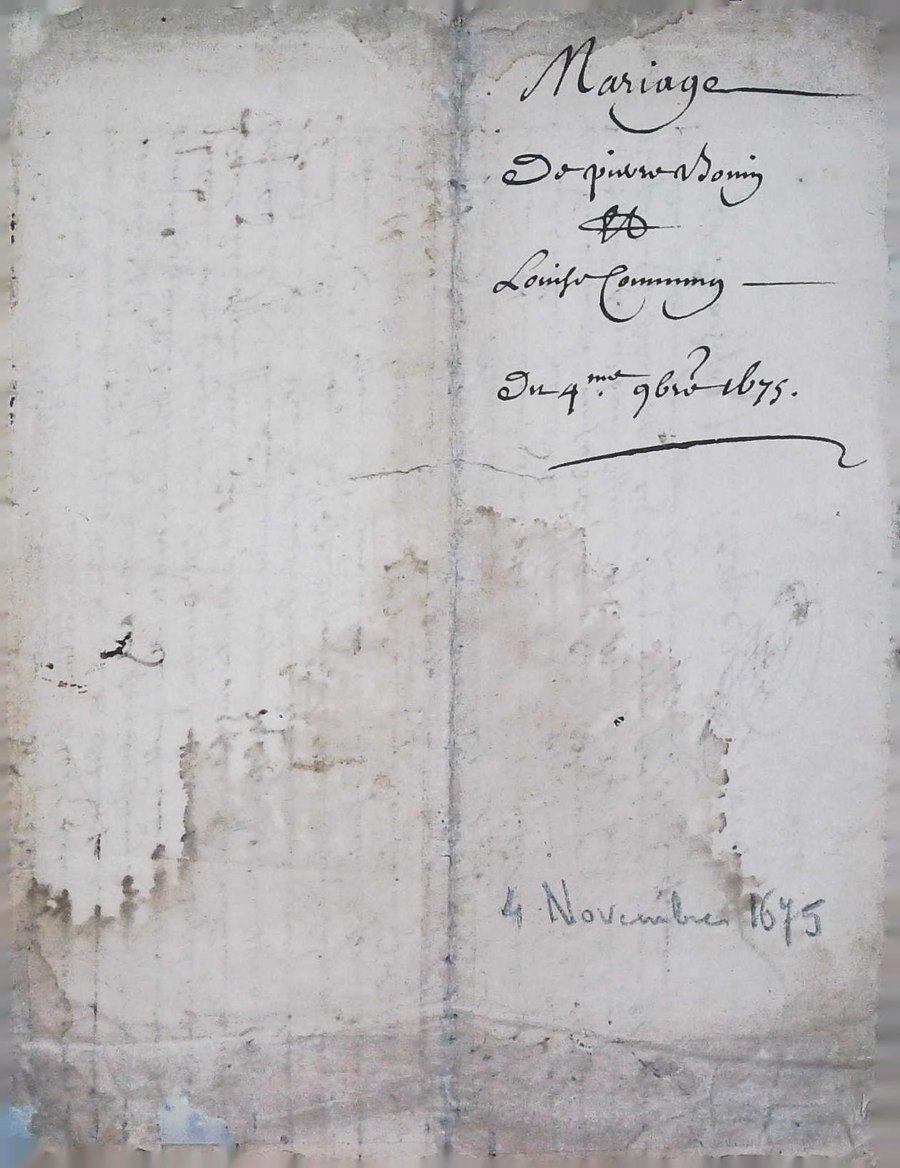 Mariage
De pierre Bonin
Et
Louise Communy
Du 4.me 9bre 1675.
4 Novembre 1675